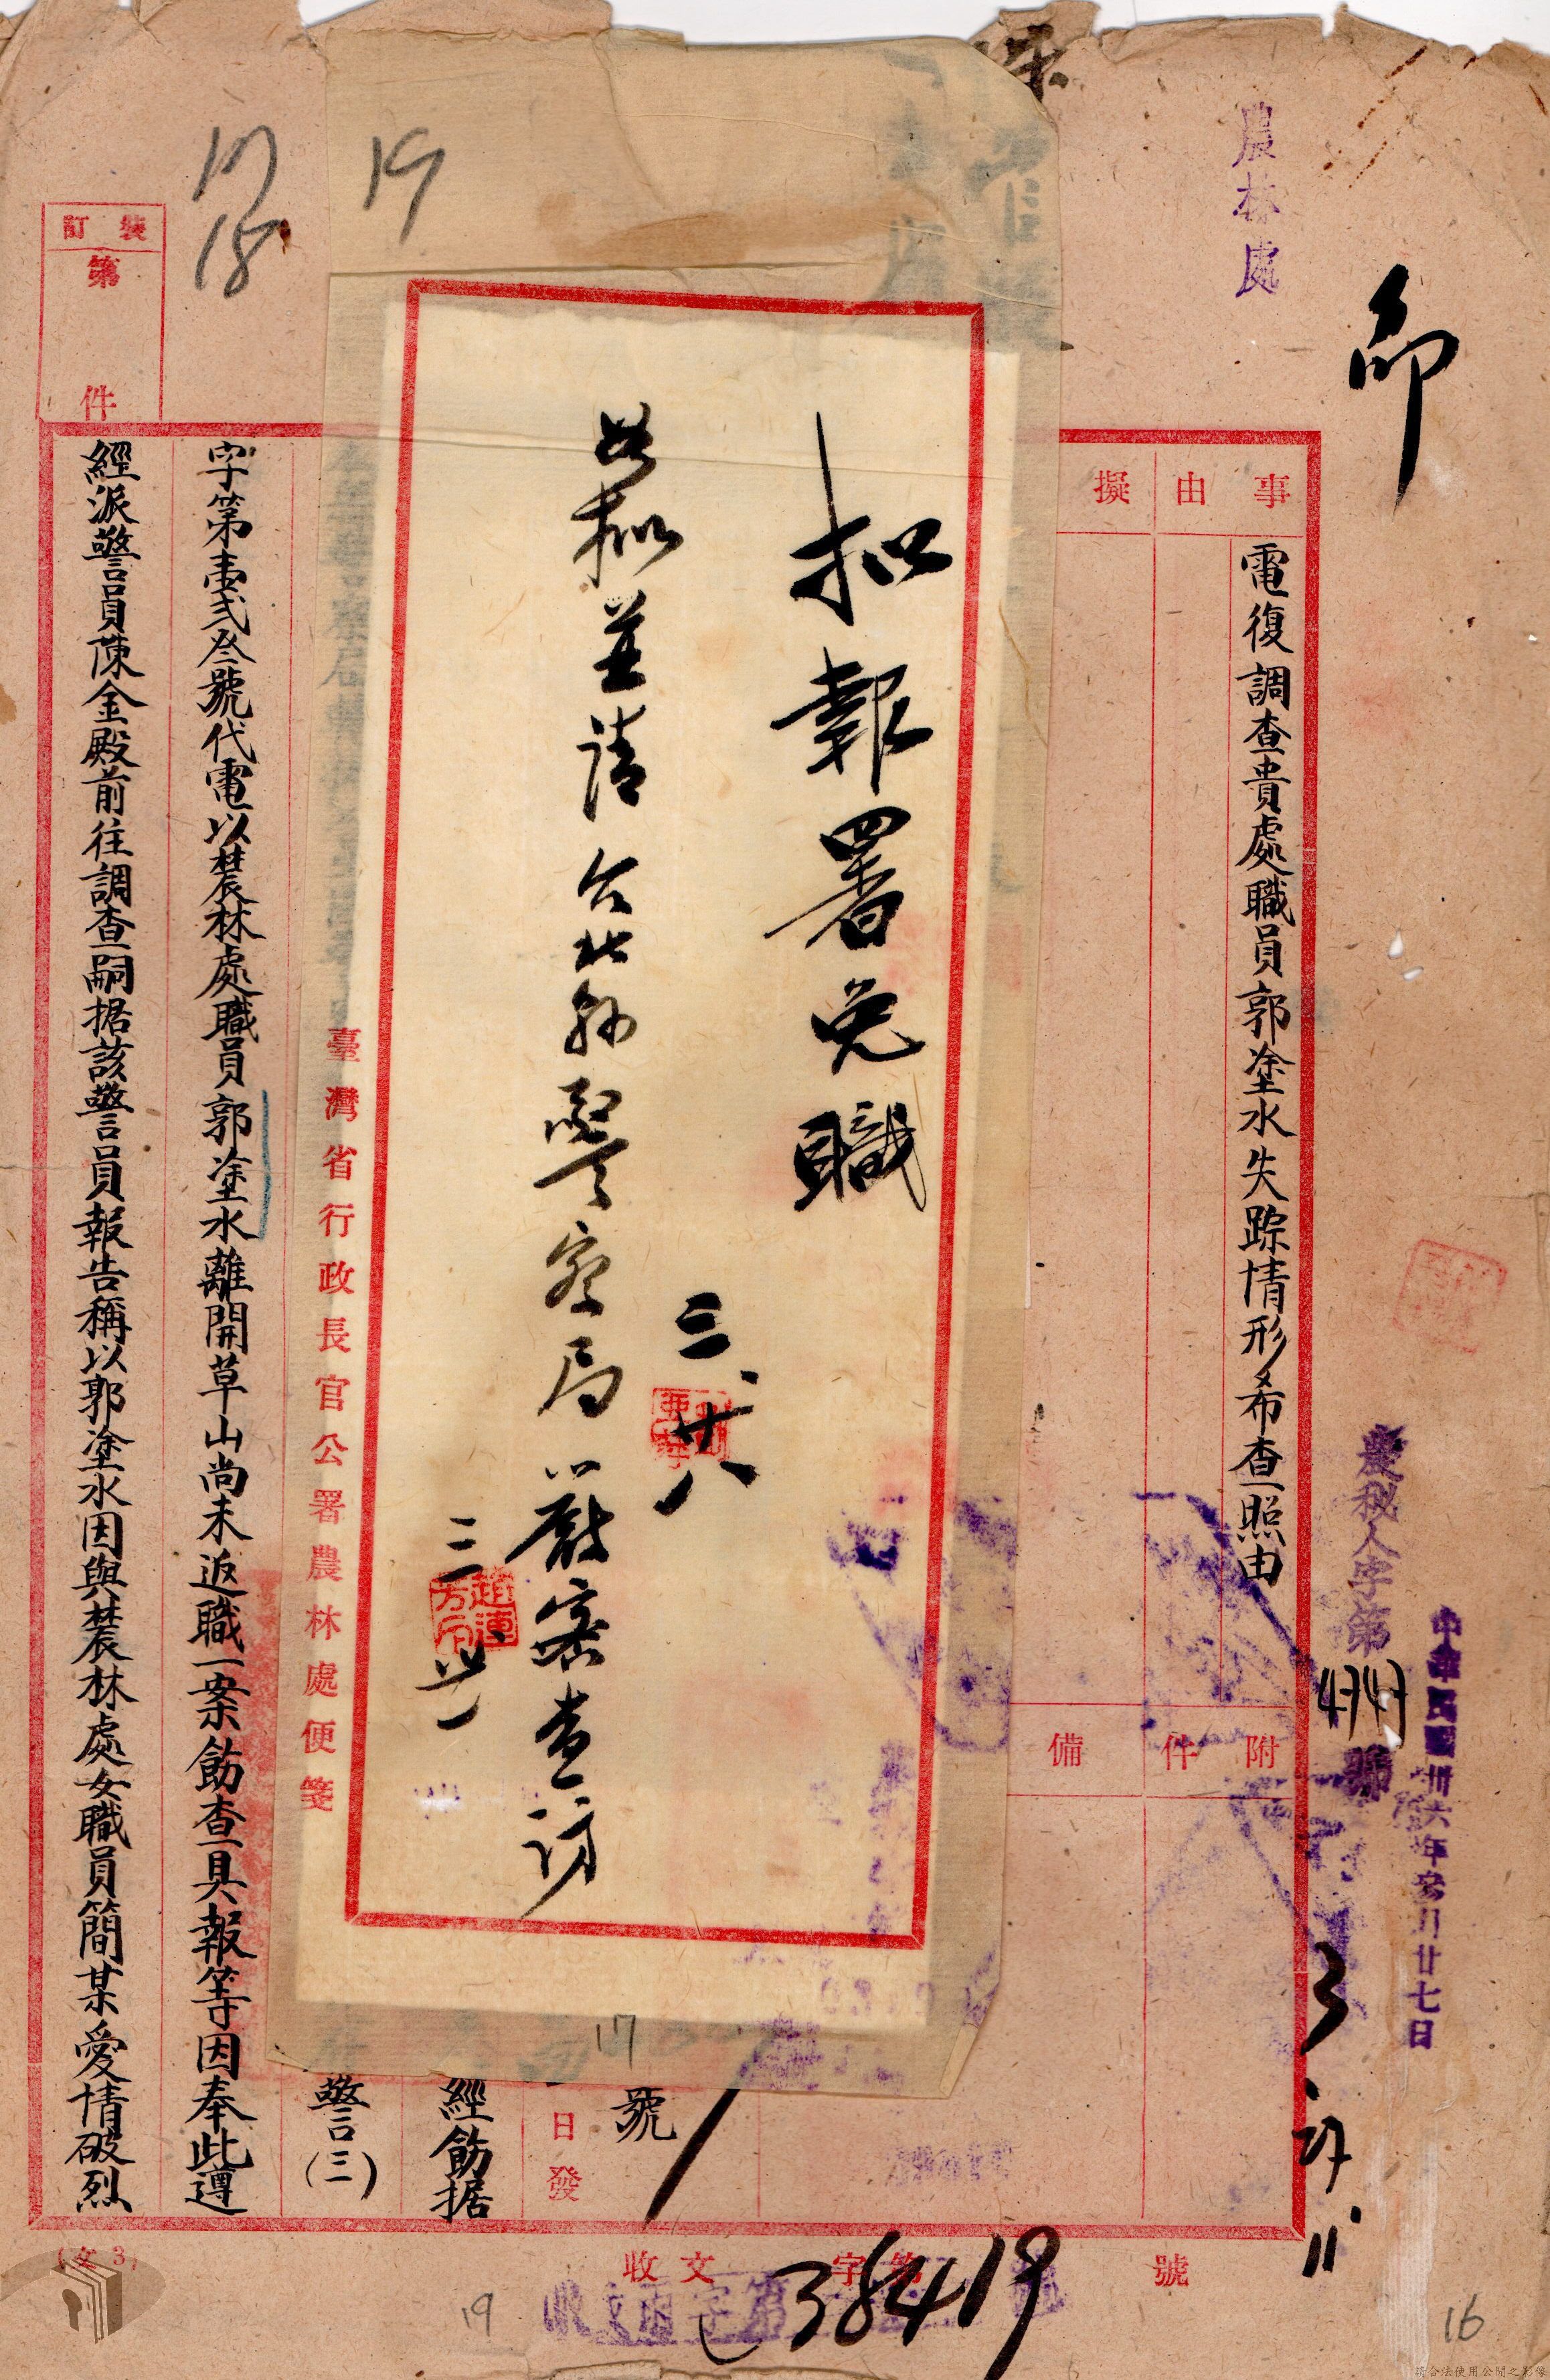 農林處
印
事由
擬
電復調查貴處職員郭塗水失踪情形希查照由
附件
備
農秘人字第4747號
中華民國卅六年叁月廿七日
扣報署免職
三、廿八
如擬並請台北縣警察局嚴密查訪
趙連芳印
臺灣省行政長官公署農林處便箋
號
日發
經飭据
警(三)
字第壹弍叁號代電以農林處職員郭塗水離開草山尚未返職一案飭查具報等因奉此遵
經派警員陳金殿前往調查嗣据該警員報告稱以郭塗水因與農林處女職員簡某愛情破烈
裝訂
第 件
17
18
19
收文 字第 號
38419
17
19
16
請合法使用公開之影像